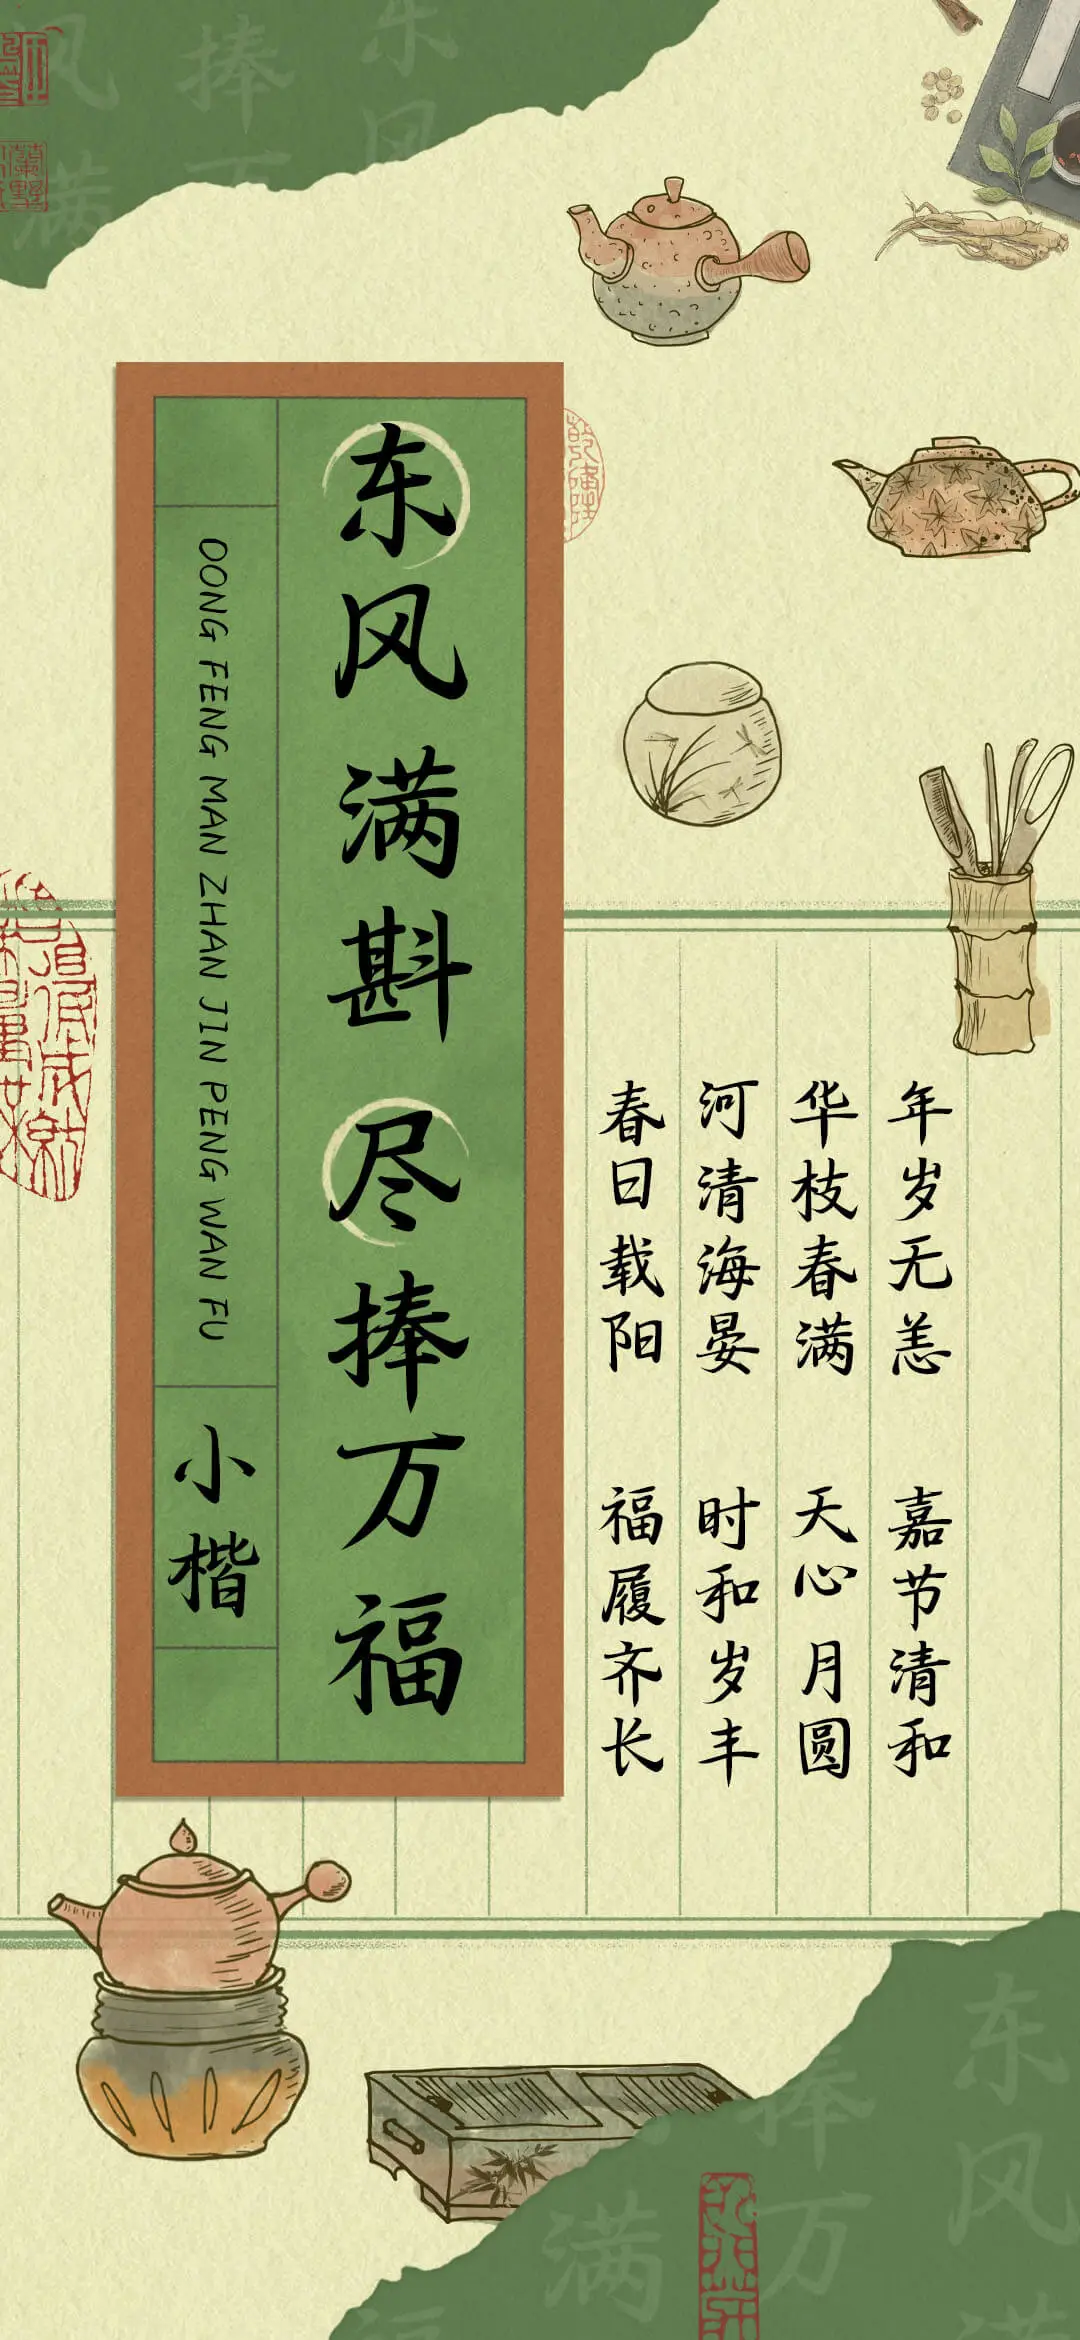 东风满斟 尽捧万福
OONG FENG MAN ZHAN JIN PENG WAN FU
小楷
年岁无恙 嘉节清和
华枝春满 天心月圆
河清海晏 时和岁丰
春日载阳 福履齐长